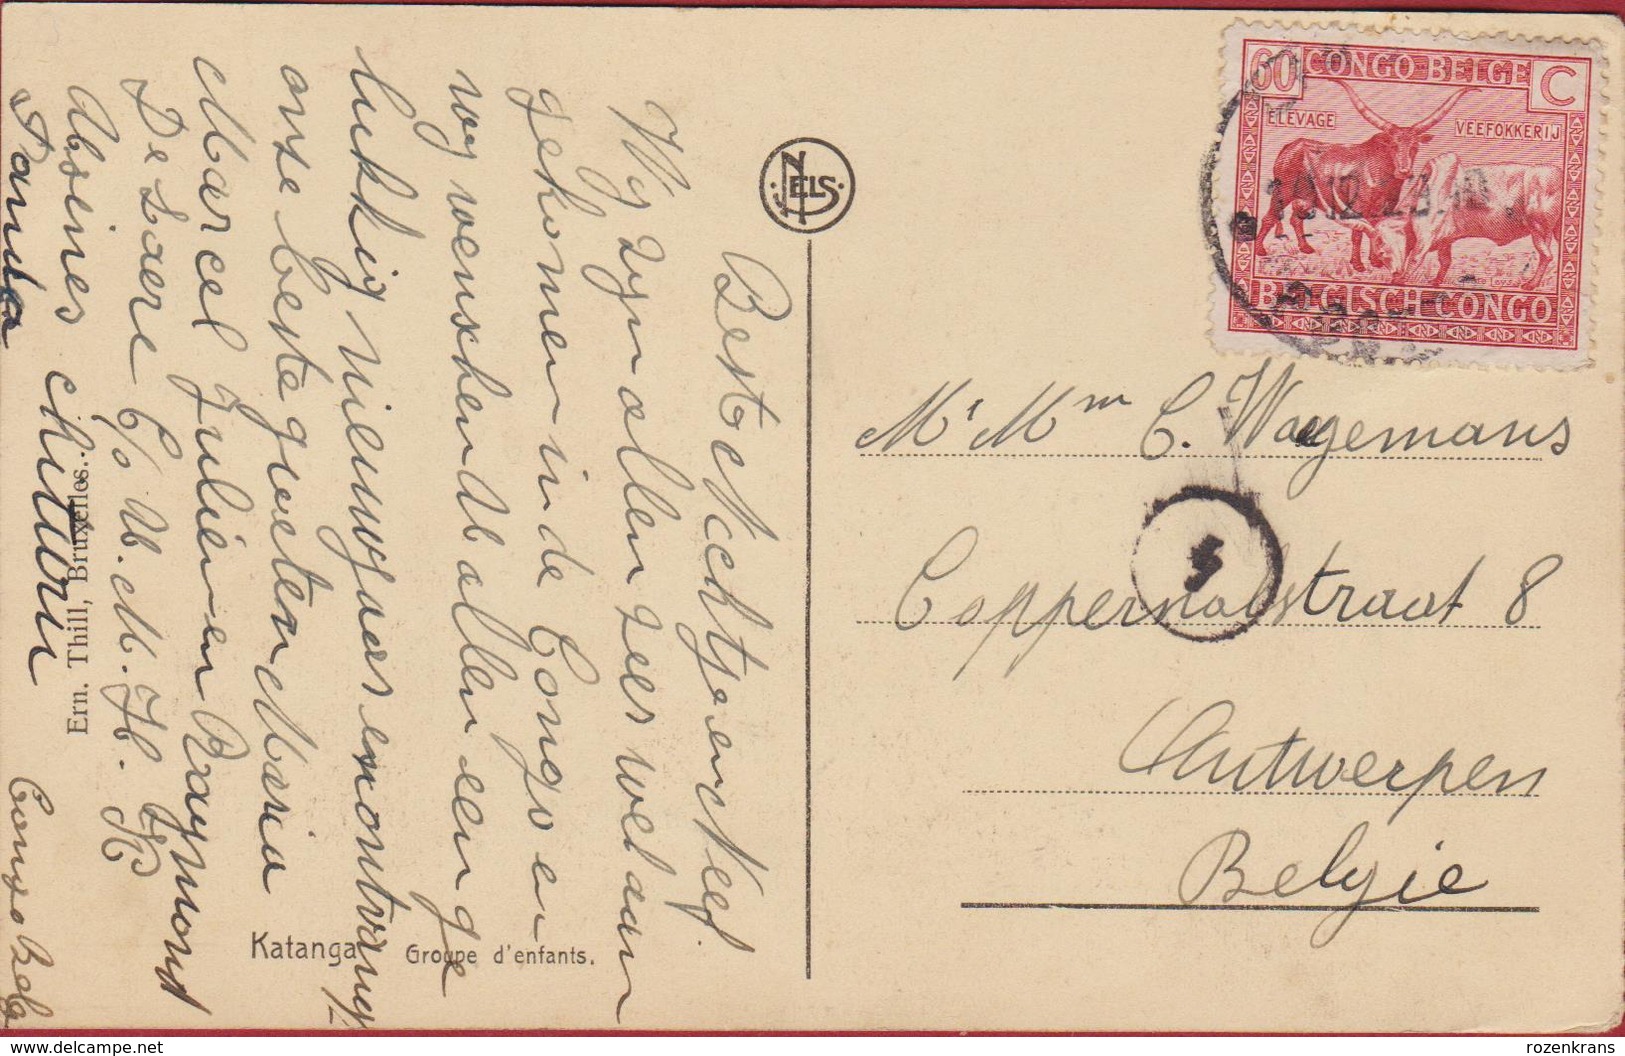 Beste Nechtje en Neef.
Wy zyn allen zeer wel aan
gekomen in de Congo en
wy wenschen U allen een ge
lukkig nieuwjaar en ontvang
onze beste groeten Maria
Marcel Julien en Raymond
De Laere C/o U. M. H. K
Panda Congo Belge
Katanga Groupe d'enfants.
Ern. Thill, Bruxelles.
NELS
60 CONGO BELGE C
ELEVAGE VEEFOKKERIJ
BELGISCH-CONGO
Mr Mm C. Wagemans
Coppernolstraat 8
Antwerpen
Belgie
delcampe.net
rozenkrans